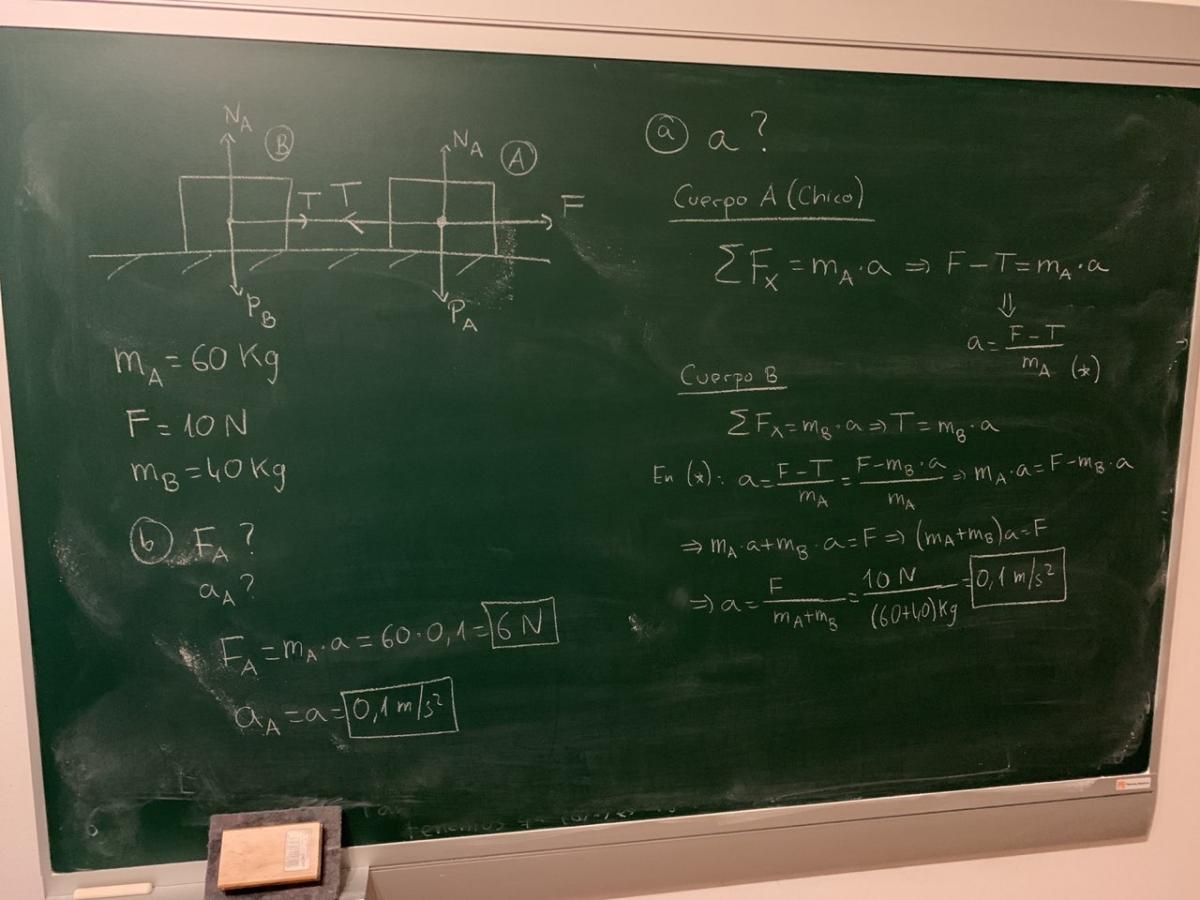 N_A
B
N_A
A
T T
F
P_B
P_A
m_A = 60 Kg
F = 10 N
m_B = 40 Kg
b F_A ?
a_A ?
F_A = m_A · a = 60 · 0,1 = 6 N
a_A = a = 0,1 m/s²
a a ?
Cuerpo A (Chico)
∑F_x = m_A · a ⇒ F − T = m_A · a
⇓
a = (F − T)/m_A (*)
Cuerpo B
∑F_x = m_B · a ⇒ T = m_B · a
En (*): a = (F − T)/m_A = (F − m_B · a)/m_A ⇒ m_A · a = F − m_B · a
⇒ m_A · a + m_B · a = F ⇒ (m_A + m_B)a = F
⇒ a = F/(m_A + m_B) = 10 N/(60+40)Kg = 0,1 m/s²